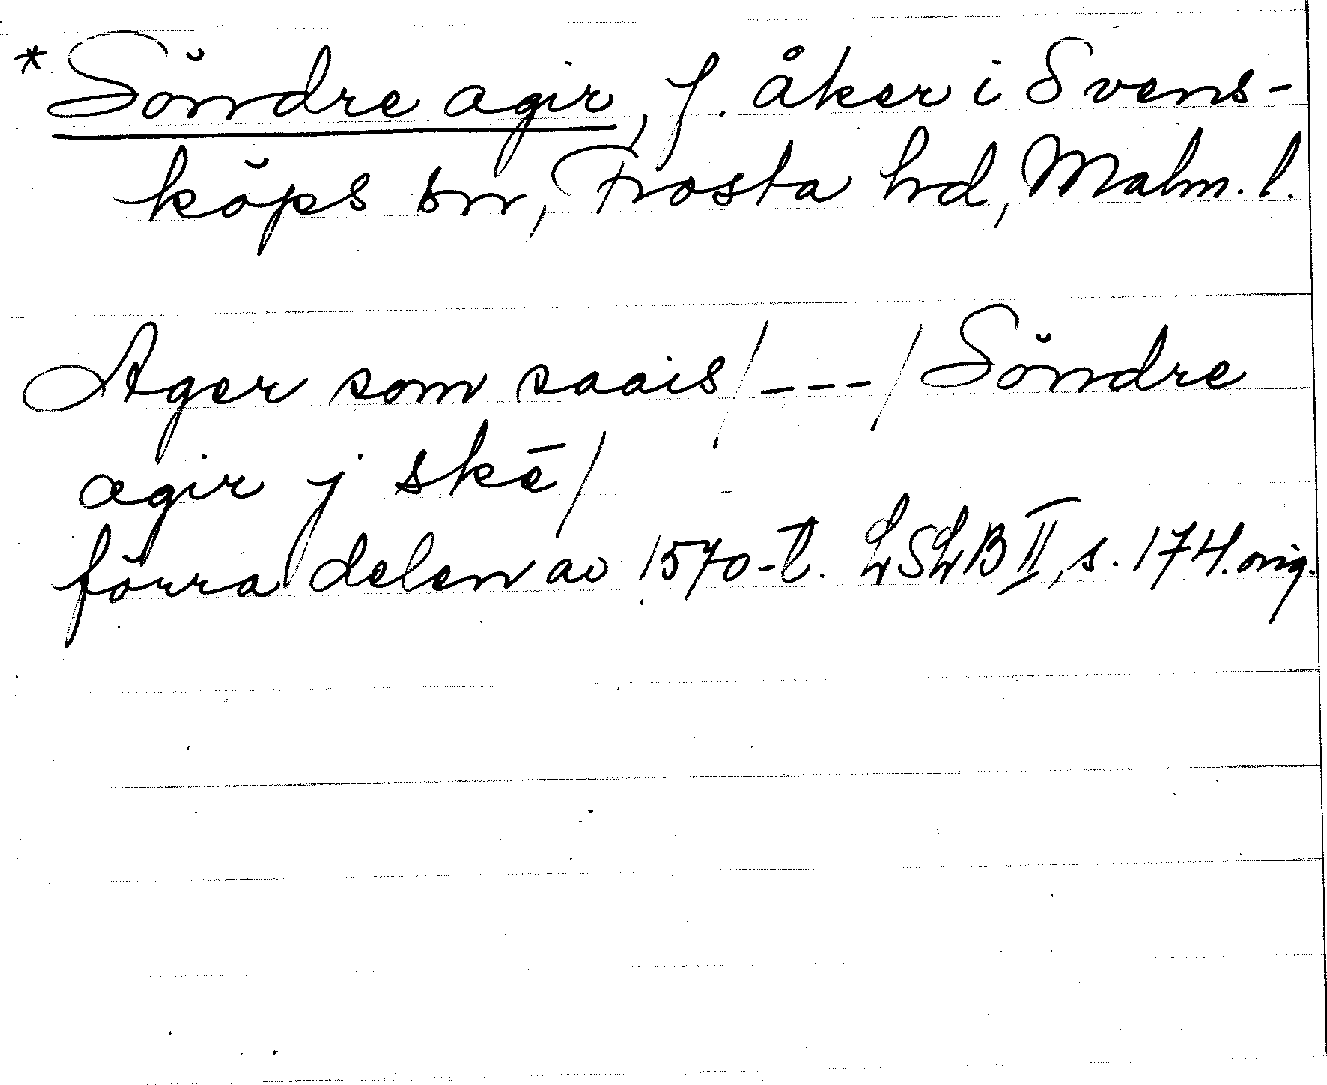 *Söndre agir, f. åker i Svens-
köps sn, Frosta hd, Malm. l.
Ager som saais/---/Söndre
agir j skē/
förra delen av 1570-t. LSLB II, s. 174. orig.